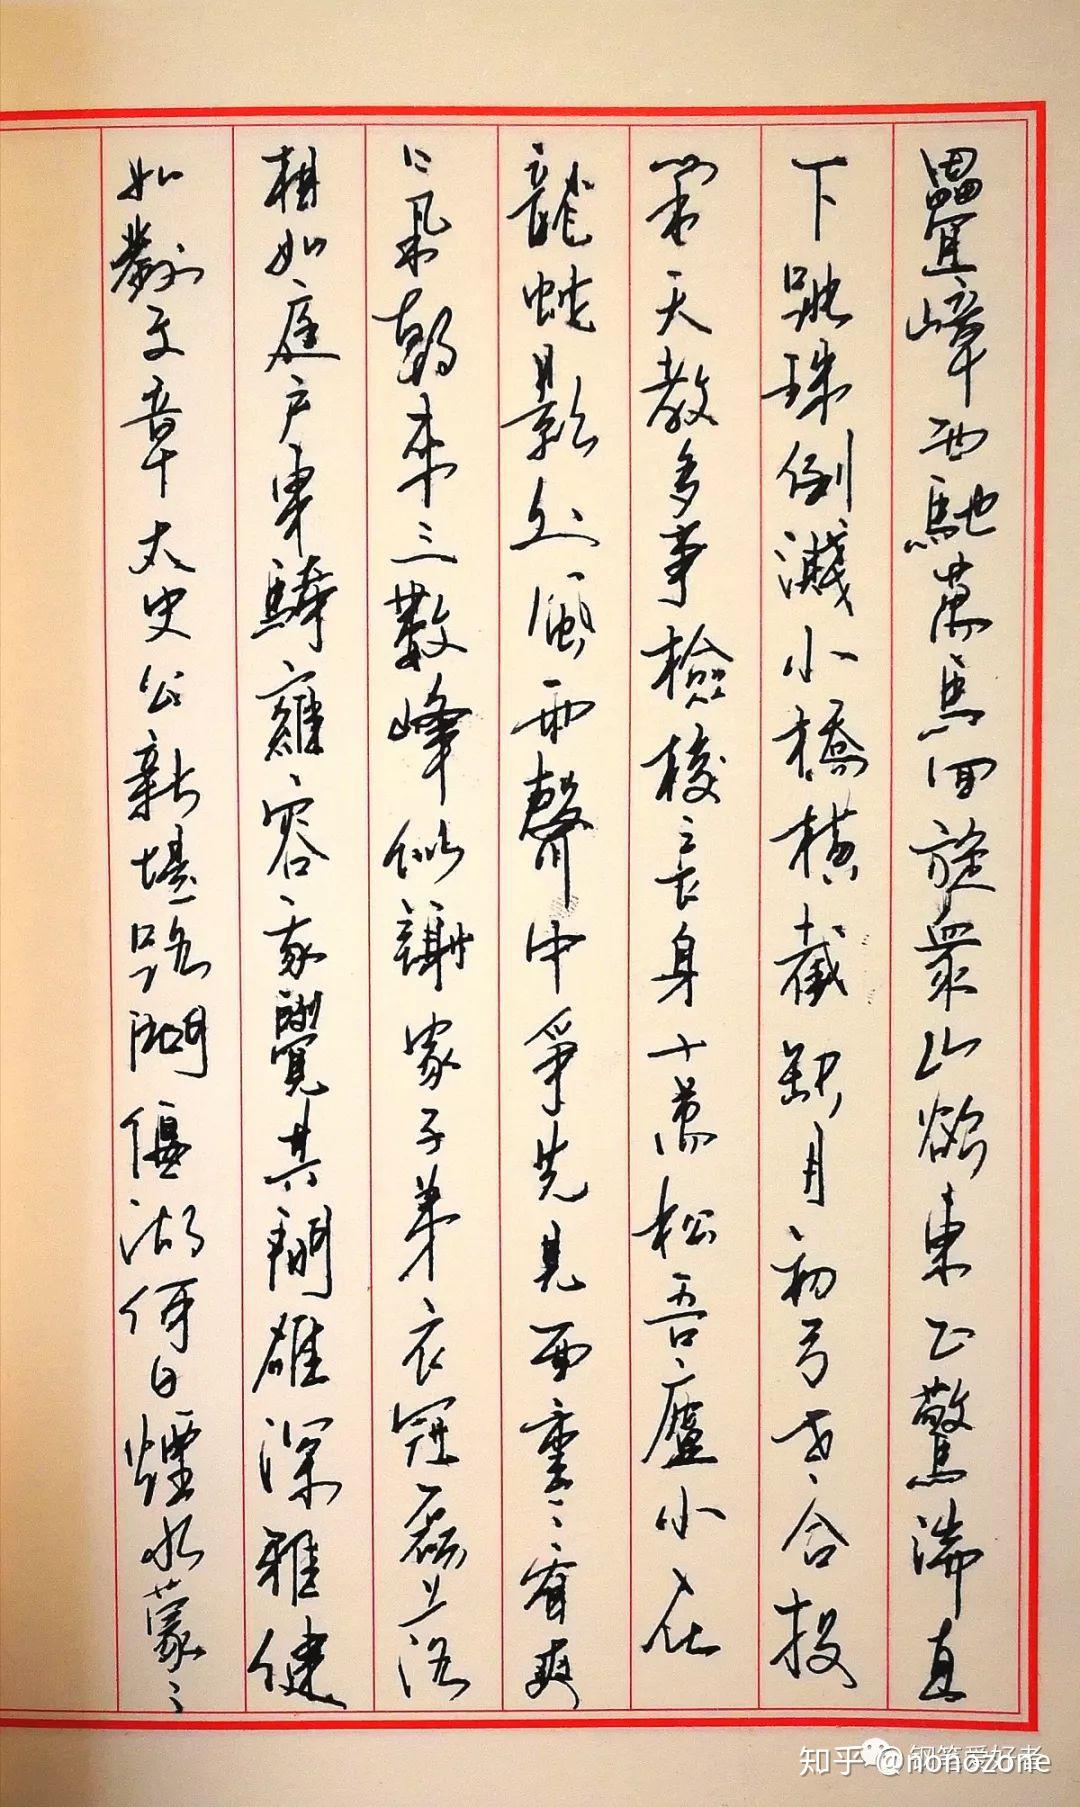 疊嶂西馳萬馬回旋衆山欲東正驚湍直
下跳珠倒濺小橋橫截缺月初弓老合投
閒天教多事檢校長身十萬松吾廬小在
龍蛇影外風雨聲中爭先見面重〻看爽
氣朝来三數峰似謝家子弟衣冠磊落
相如庭户車騎雍容我覺其間雄深雅健
如對文章太史公新堤路問偃湖何日煙水蒙〻
钢笔爱好者
知乎 @nonozone